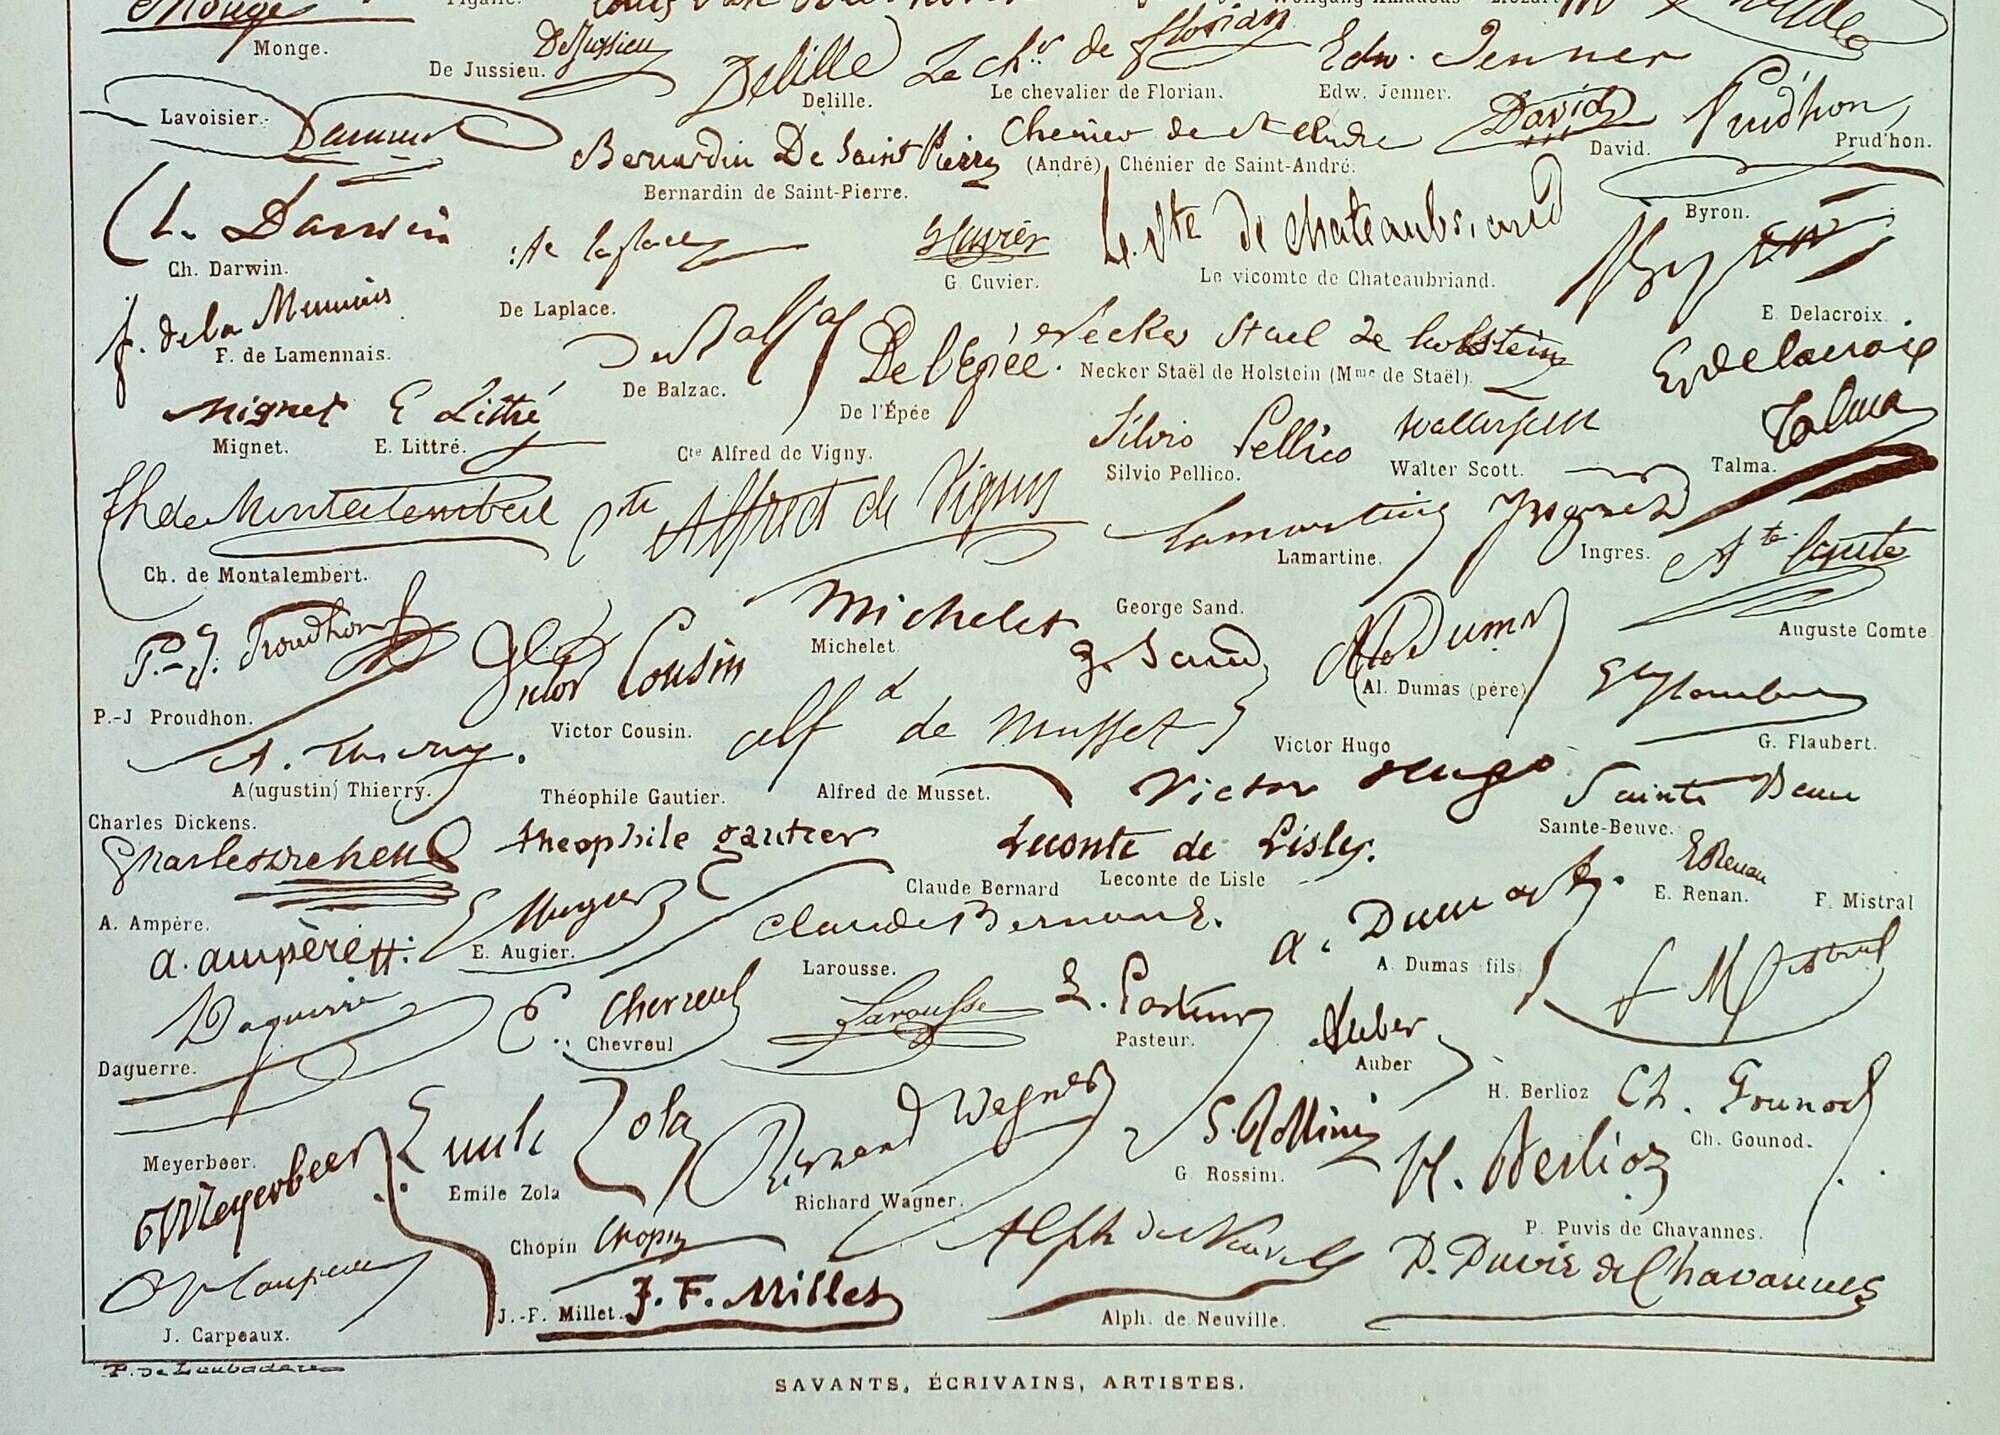 Monge
Monge.
Pigalle.
DeJussieu
De Jussieu.
Delille
Delille.
Le chr de florian
Le chevalier de Florian.
Edw. Jenner
Edw. Jenner.
Lavoisier.
Bernardin De Saint Pierre
Bernardin de Saint-Pierre.
Chenier de st andre
(André) Chénier de Saint-André.
David
David.
Prudhon
Prud'hon.
Ch. Darwin
Ch. Darwin.
de laplace
De Laplace.
G Cuvier
G Cuvier.
Le vte de chateaubriand
Le vicomte de Chateaubriand.
Byron.
Byron
F. de la Mennais
F. de Lamennais.
De Balzac
De Balzac.
De l'Epée.
De l'Épée
Necker Stael de holstein
Necker Staël de Holstein (Mme de Staël).
E. Delacroix.
Eug Delacroix
Mignet
Mignet.
E Littré
E. Littré.
Cte Alfred de Vigny.
Silvio Pellico
Silvio Pellico.
Walter Scott
Walter Scott.
Talma
Talma.
Ch de Montalembert
Ch. de Montalembert.
Cte Alfred de Vigny
Lamartine
Lamartine.
Ingres
Ingres.
Ate Comte
Auguste Comte
P.-J. Proudhon
P.-J Proudhon.
Victor Cousin
Victor Cousin.
Michelet
Michelet.
George Sand.
G. Sand
Alex Dumas
(Al. Dumas (père)
Gve Flaubert
G. Flaubert.
A. Thierry.
A(ugustin) Thierry.
Théophile Gautier.
Alfd de Musset
Alfred de Musset.
Victor Hugo
Victor Hugo
Sainte Beuve
Sainte-Beuve.
Charles Dickens.
Charles Dickens
theophile gautier
Leconte de Lisle.
Leconte de Lisle
Claude Bernard
Claude Bernard.
E Renan
E. Renan.
F. Mistral
F Mistral
A. Ampère.
a. ampère
E Augier
E. Augier.
Larousse.
Larousse
a. Dumas f.
A. Dumas fils
Daguerre
Daguerre.
E. Chevreul
Chevreul
L. Pasteur
Pasteur.
Auber
Auber
H. Berlioz
H. Berlioz
Ch. Gounod
Ch. Gounod.
Meyerbeer.
Meyerbeer
Emile Zola
Emile Zola
Richard Wagner
Richard Wagner.
G. Rossini
G. Rossini.
P. Puvis de Chavannes.
P. Puvis de Chavannes
Chopin
Chopin
J. Carpeaux.
J.-F. Millet.
J. F. Millet
Alph de Neuville
Alph. de Neuville.
SAVANTS, ÉCRIVAINS, ARTISTES.